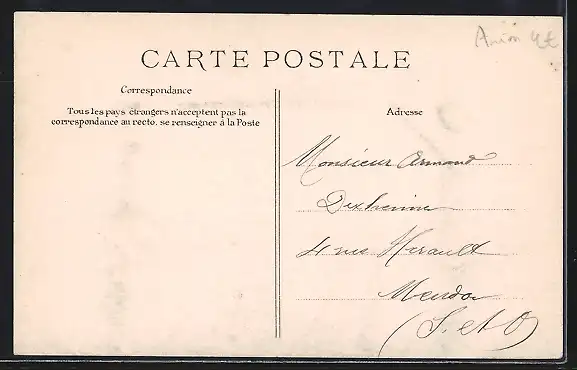 CARTE POSTALE
Correspondance
Tous les pays étrangers n'acceptent pas la
correspondance au recto. se renseigner à la Poste
Adresse
Monsieur Armand
4 rue Hérault
Meudon
(S. et O)